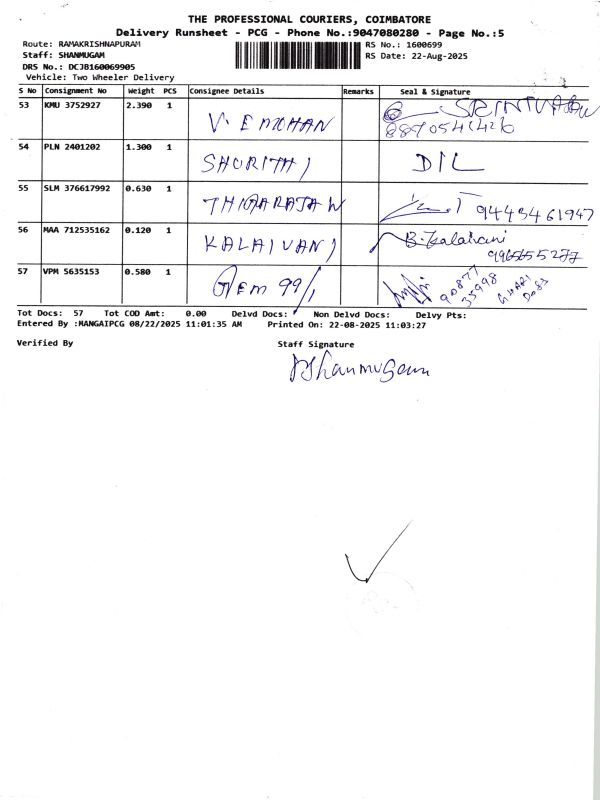 THE PROFESSIONAL COURIERS, COIMBATORE
Delivery Runsheet - PCG - Phone No.:9047080280 - Page No.:5
Route: RAMAKRISHNAPURAM
RS No.: 1600699
Staff: SHANMUGAM
RS Date: 22-Aug-2025
DRS No.: DCJB160069905
Vehicle: Two Wheeler Delivery
S No Consignment No Weight PCS Consignee Details Remarks Seal & Signature
53 KMU 3752927 2.390 1 V.
54 PLN 2401202 1.300 1 DIL
55 SLM 376617992 0.630 1 THIGARAJAN 9443461947
56 MAA 712535162 0.120 1 KALAIVANI B.Kalaivani
57 VPM 5635153 0.580 1 GEM 99/1 90877 35998
Tot Docs: 57 Tot COD Amt: 0.00 Delvd Docs: Non Delvd Docs: Delvy Pts:
Entered By :MANGAIPCG 08/22/2025 11:01:35 AM Printed On: 22-08-2025 11:03:27
Verified By Staff Signature
Shanmugam